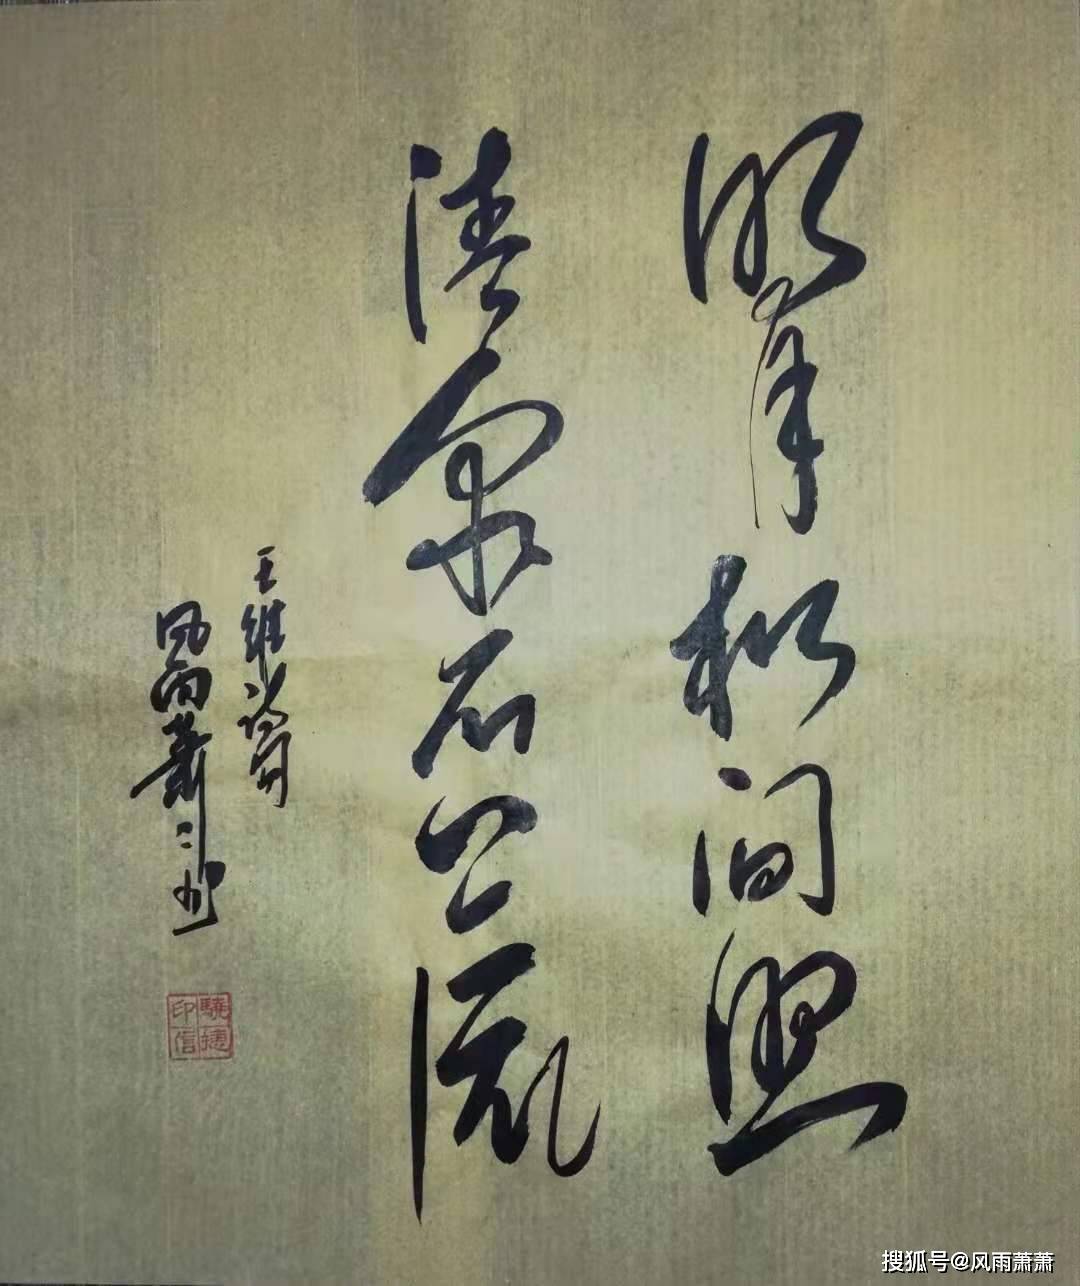 明月松间照
清泉石上流
王维诗句
风雨萧〻书
印信
搜狐号@风雨萧萧